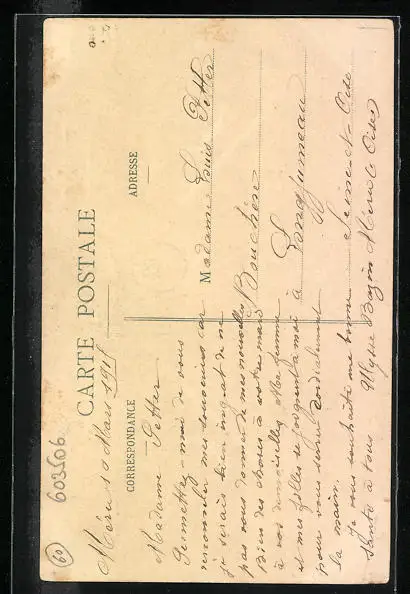 CARTE POSTALE
CORRESPONDANCE
ADRESSE
Méru 10 Mars 1911
Madame Petter
Permettez-moi de vous
renouveler mes souvenirs car
je serais bien ingrat de ne
pas vous donner de mes nouvelles
Bien des choses à votre mari
à vos demoiselles Ma femme
et mes filles se joignent à moi
pour vous serrer cordialement
la main.
Je vous souhaite une bonne
santé à tous Ulysse Bazin Méru (Oise)
Madame Louis Petter
Bouchère
à Longjumeau
Seine-et-Oise
603506
60